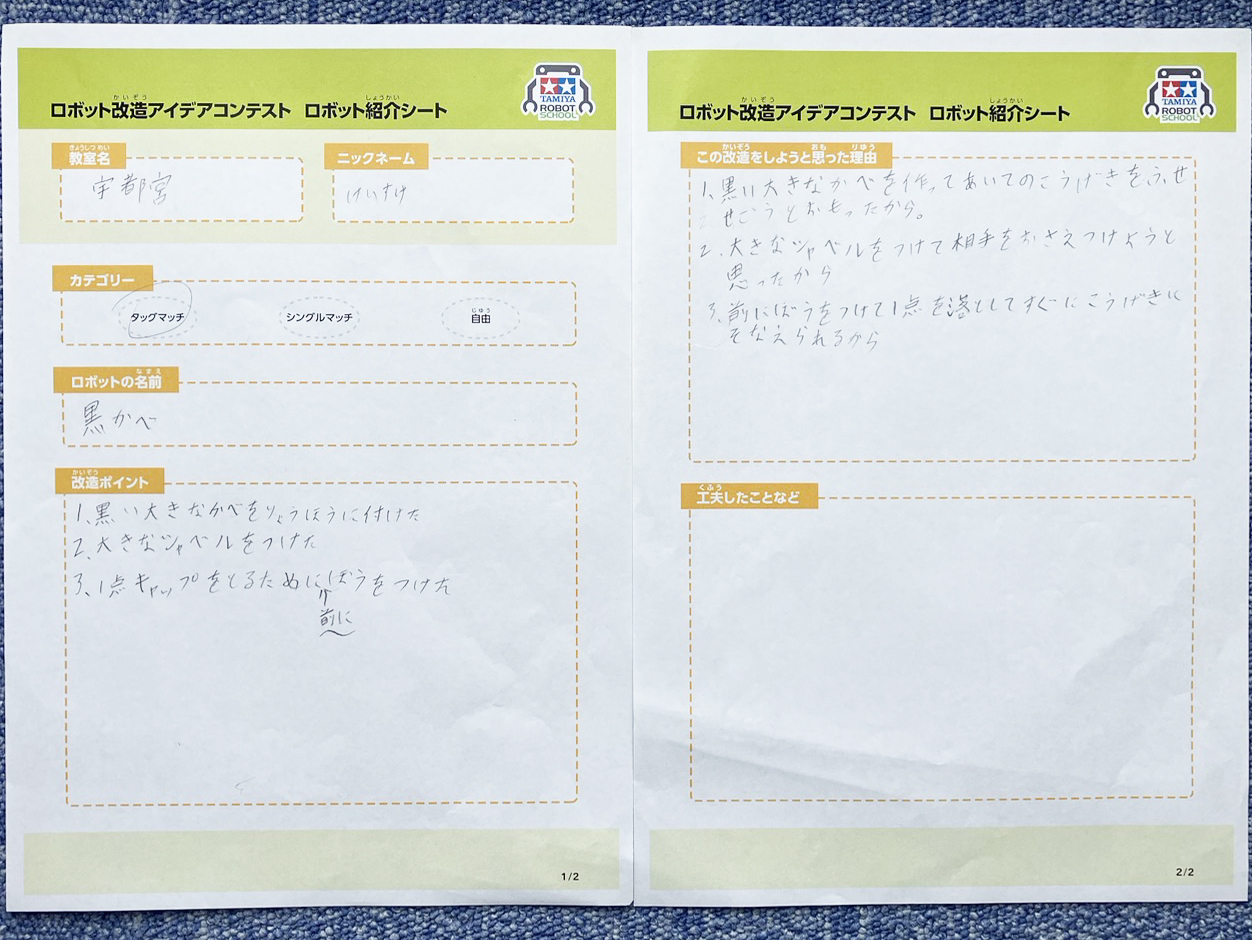 ロボット改造アイデアコンテスト ロボット紹介シート
かいぞう
しょうかい
TAMIYA
ROBOT
SCHOOL
きょうしつ めい
教室名
ニックネーム
宇都宮
けいすけ
カテゴリー
タッグマッチ
シングルマッチ
じゆう
自由
なまえ
ロボットの名前
黒かべ
かいぞう
改造ポイント
1、黒い大きなかべをりょうほうに付けた
2、大きなシャベルをつけた
3、1点キャップをとるためにぼうをつけた
前に
1/2
かいぞう
しょうかい
ロボット改造アイデアコンテスト ロボット紹介シート
TAMIYA
ROBOT
SCHOOL
かいぞう おも りゆう
この改造をしようと思った理由
1、黒い大きなかべを作ってあいてのこうげきをふせ
せごうとおもったから。
2、大きなシャベルをつけて相手をおさえつけようと
思ったから
3、前にぼうをつけて1点を落としてすぐにこうげきに
そなえられるから
くふう
工夫したことなど
2/2